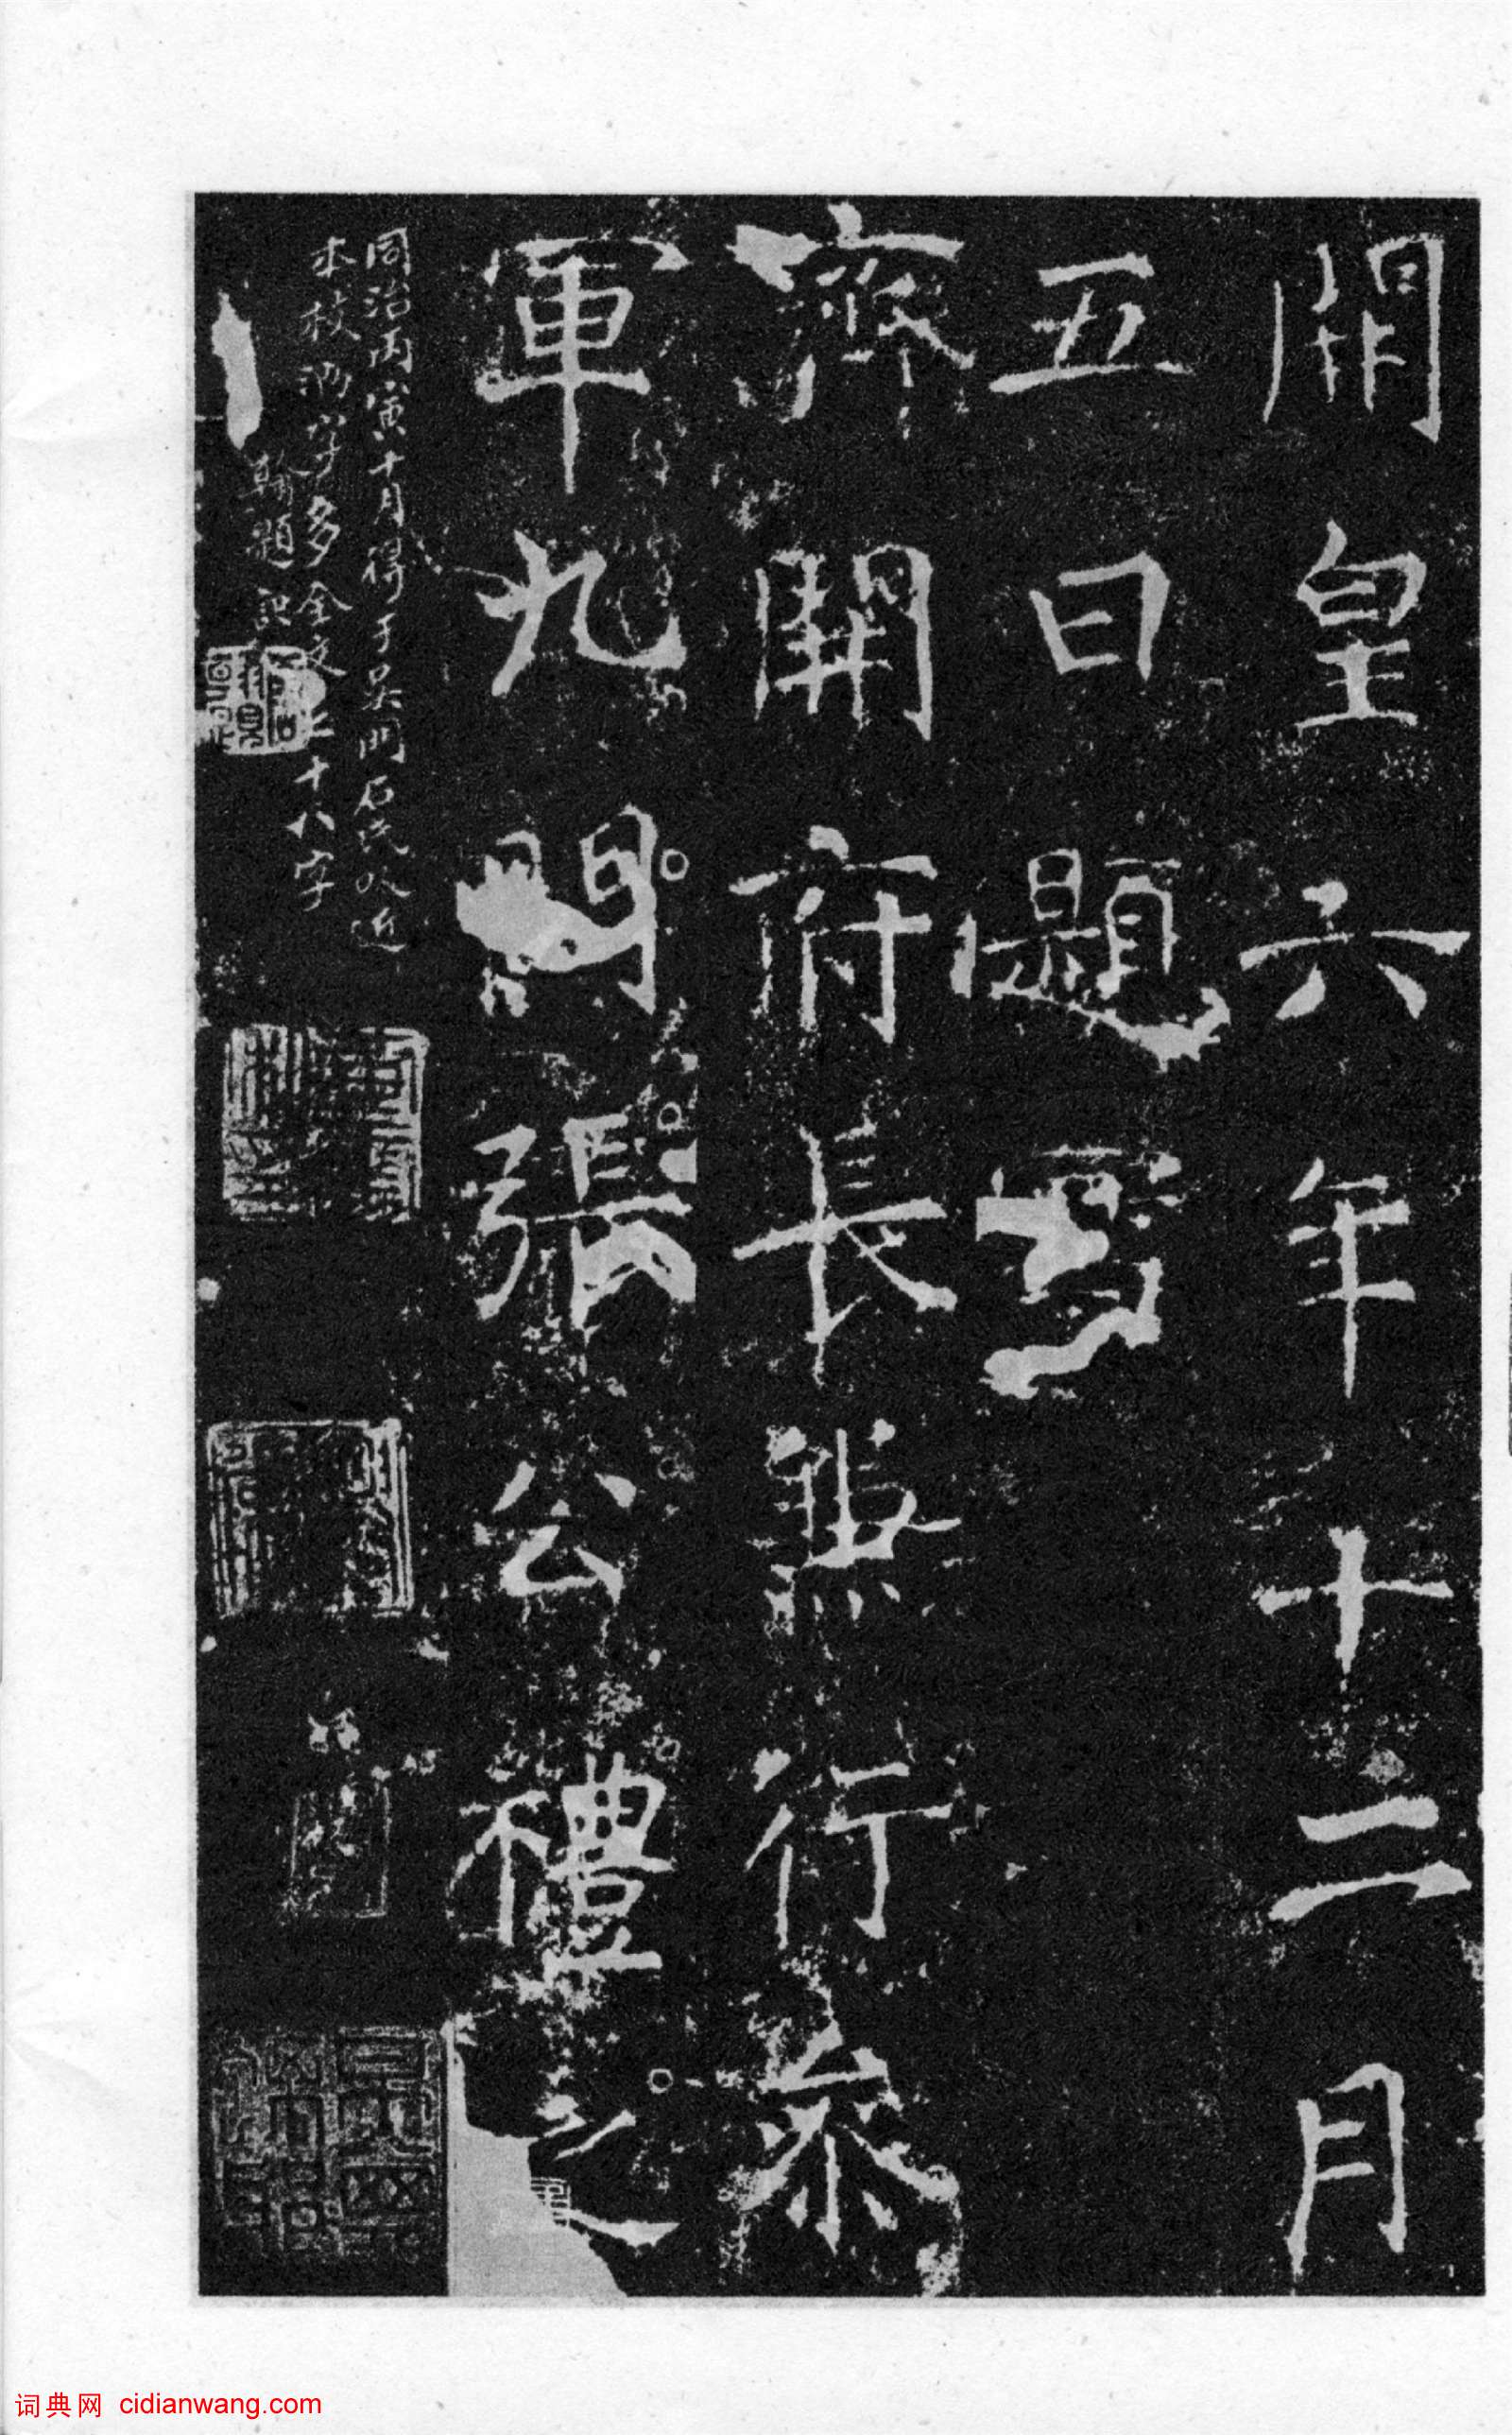 開皇六年十二月
五日題寫
齊開府長兼行參
軍九門張公禮之
同治丙寅十月得于吴門石氏以近
本校泐字多全文三十八字
翰題記
词典网 cidianwang.com